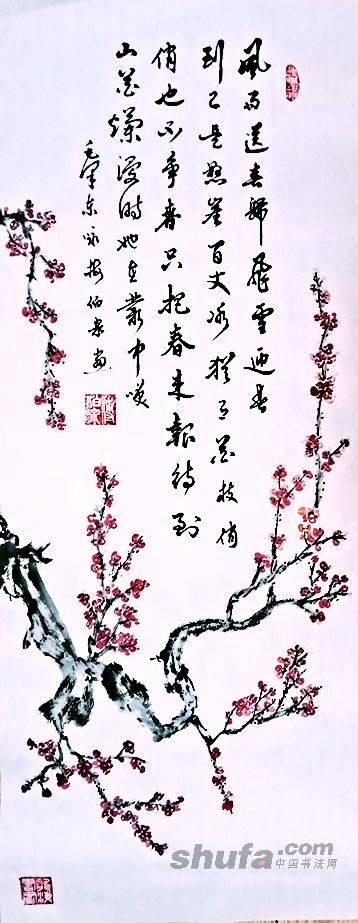 風雨送春歸飛雪迎春
到已是懸崖百丈冰猶有花枝俏
俏也不爭春只把春來報待到
山花爛漫時她在叢中笑
毛澤東詠梅
shufa.com
中国书法网